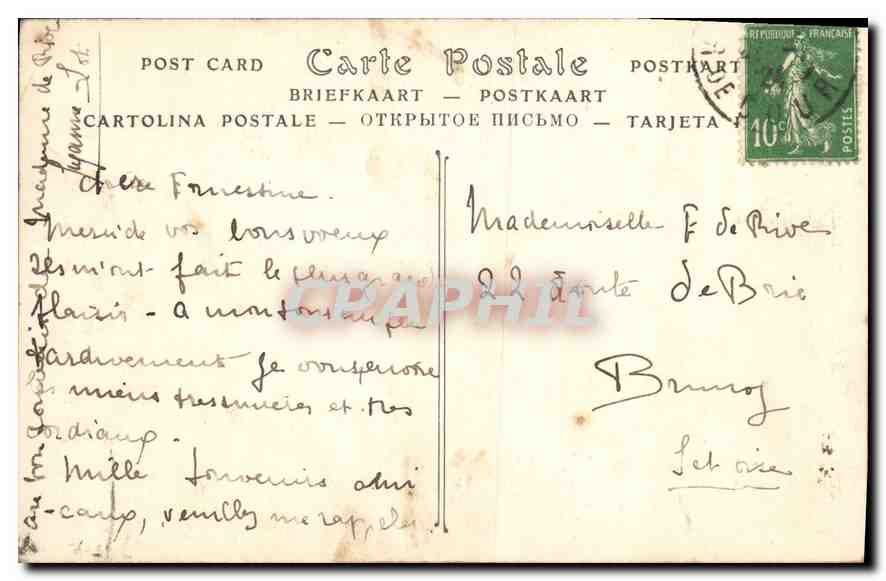 POST CARD Carte Postale POSTKART
BRIEFKAART — POSTKAART
CARTOLINA POSTALE — ОТКРЫТОЕ ПИСЬМО — TARJETA
REPUBLIQUE FRANÇAISE
10c
POSTES
Chère Ernestine.
Merci de vos bons voeux
Ils m'ont fait le plus grand
plaisir - a mon tour un peu
tardivement je vous envoie
les miens tres sinceres et tres
cordiaux.
Mille souvenirs ami
-caux, veuillez me rappeler
au bon souvenir de Madame de Rive
Suzanne
Mademoiselle E de Rives
22 Route de Brie
Brunoy
S et oise
CPAPHIL